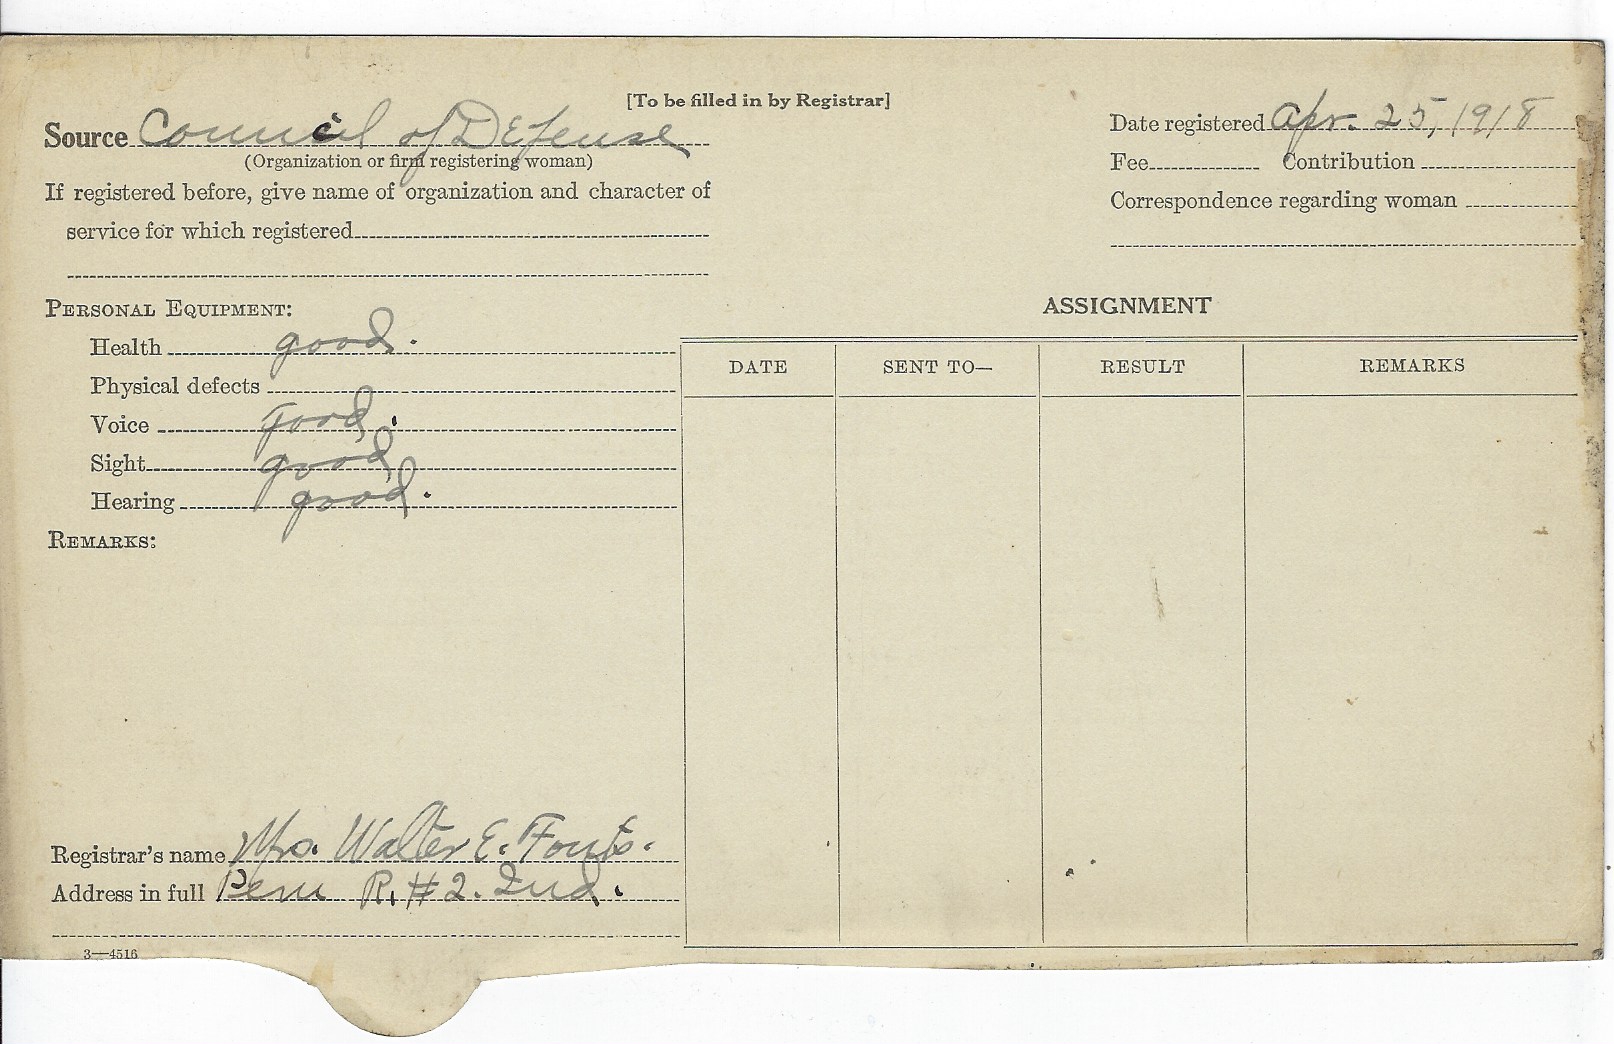 [To be filled in by Registrar]
Source Council of Defense
(Organization or firm registering woman)
If registered before, give name of organization and character of
service for which registered
Date registered Apr. 25, 1918
Fee Contribution
Correspondence regarding woman
PERSONAL EQUIPMENT:
Health good.
Physical defects
Voice good.
Sight good
Hearing good.
REMARKS:
Registrar's name Mrs. Walter E. Fouts.
Address in full Peru R. #2. Ind.
3—4516
ASSIGNMENT
DATE SENT TO— RESULT REMARKS